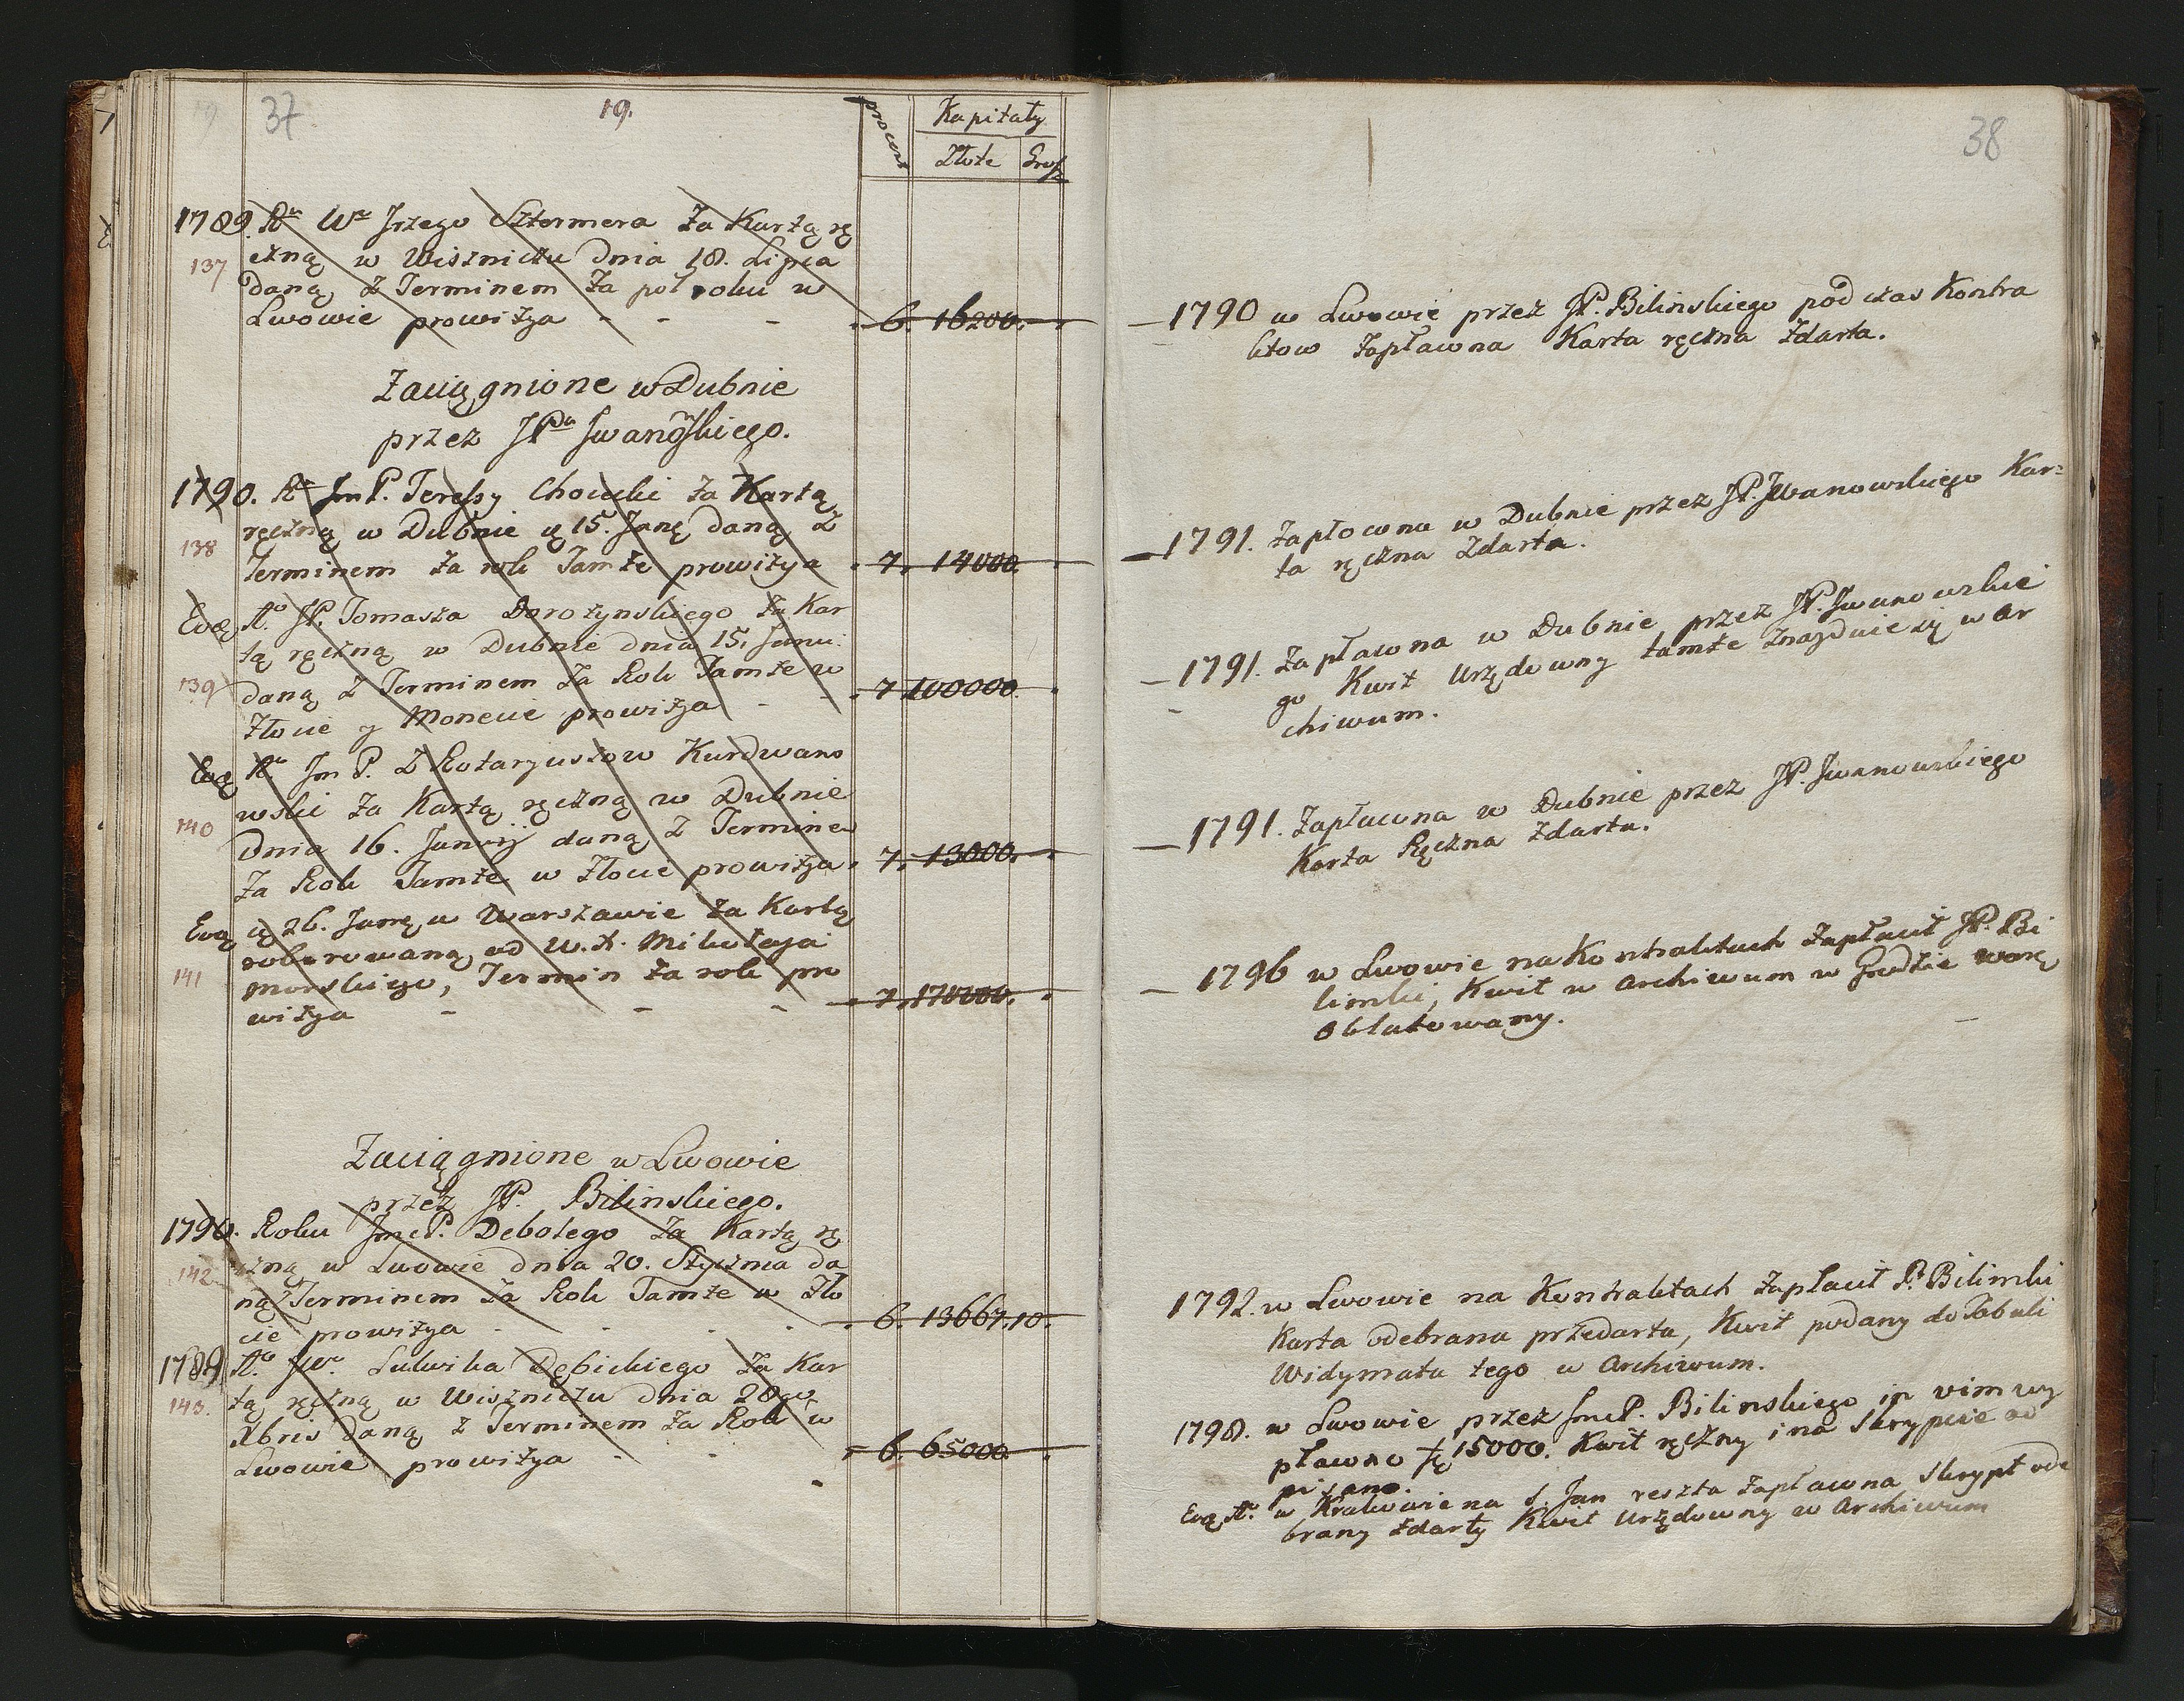 37 19.
procent
Kapitały
Złote Grosz
1789. Ao Wo Jrzego Sztormera za Kartą rę
137 czną w Wisniczu Dnia 18. Lipca
Daną, z Terminem za poł roku w
Lwowie prowizya - - - 6. 16200.
Zaciągnione w Dubnie
przez JPa Iwanoskiego.
1790. Ao Jm P. Teressy Chocuki za Kartą
138 ręczną w Dubnie ą 15. Janę daną z
Terminem za rok Tamże prowizya 7. 14000.
Eoą Ao JP. Tomasza Dorożynskiego za Kar
tą ręczną w Dubnie dnia 15. Janu:
139 daną z Terminem za Rok Tamże w
Złocie y Monecie prowizya - - 7 100000.
Eoą Ao Jm P. z Rotaryuszow Kurdwano
wski za Kartą ręczną w Dubnie
140 Dnia 16. Januarij daną z Termine
za Rok Tamże w Złocie prowizya. 7. 13000.
Eoą ą 26. Janę, w Warszawie za Kartą
roborowaną od W. X. Mikołaja
141 morskiego, Termin za rok pro
wizya - - - 7. 170000.
Zaciągnione w Lwowie
przez JP. Bilinskiego.
1790. Roku JmcP. Debolego za Kartą rę
142 czną w Lwowie dnia 20. Stycznia da
ną Terminem za Rok Tamże w Zło
cie prowizya - - - 6. 13667.10.
1789 Ao Jwo Ludwika Dębickiego za Kar
143. tą ręczną w Wiszniczu dnia 28 9
Xbris daną z Terminem za Rok w
Lwowie prowizya - - - 6. 65000
38
1790 w Lwowie przez JP. Bilinskiego pod czas Kontra
ktow zapławna Karta ręczna zdarta.
1791. zapłowna w Dubnie przez JP. Iwanowskiego Kar=
ta ręczna zdarta.
1791. zapławna w Dubnie przez JP. Iwanowskie
go Kwit Urzędowny tamże znajduie się w Ar
chiwum.
1791. zapławna w Dubnie przez JP. Iwanowskiego
Karta Ręczna zdarta.
1796 w Lwowie na Kontraktach zapłacił JP. Bi
linski, Kwit w Archiwum w Grodzie worę
oblatowany.
1792. w Lwowie na Kontraktach zapłacił P. Bilinski
Karta odebrana przedarta, Kwit podany do Tabuli
Widymata tego w Archiwum.
1798. w Lwowie przez JmcP. Bilinskiego in vim wy
pławno 15000. Kwit ręczny i na Skrypcie od
pisano.
Eoą Ao w Krakowie na S. Jan reszta zapławna Skrypt ode
brany zdarty Kwit Urzędowny w Archiwum